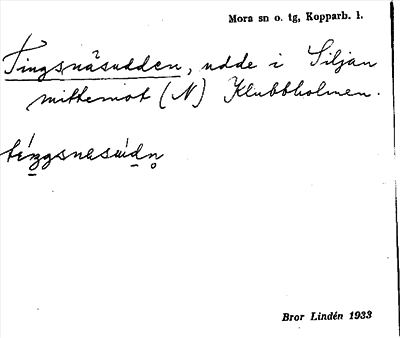 Mora sn o. tg, Kopparb. l.
Tingsnäsudden, udde i Siljan
mittemot (N) Klubbholmen.
Bror Lindén 1933